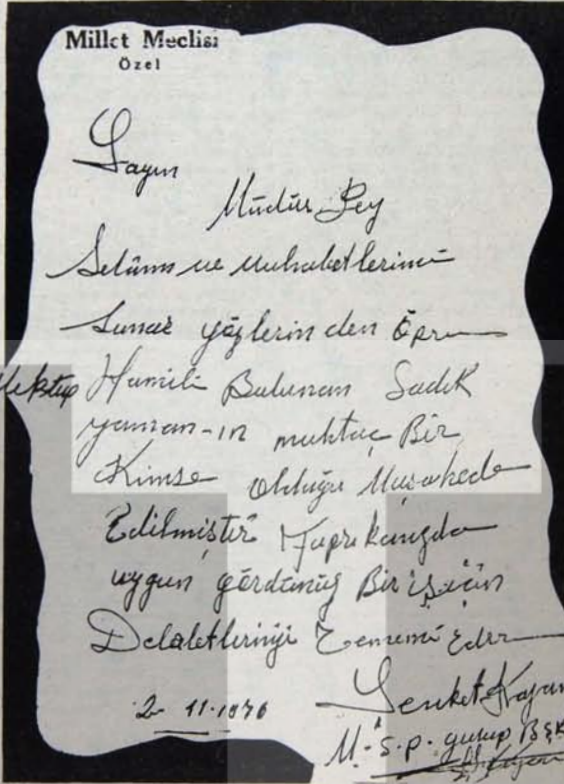 Millet Meclisi
Özel
Sayın
Müdür Bey
Selâm ve Muhabetlerimi
Sunar gözlerinden Öperim
Mektup Hamili Bulunan Sadık
yaman-ın muhtaç Bir
Kimse olduğu Müşahede
Edilmiştir Faprikanızda
uygun gördünüz Bir iş için
Delaletlerinizi Temenni Eder
Şevket Kazan
2- 11.1976
M.S.P. gurup Bşk